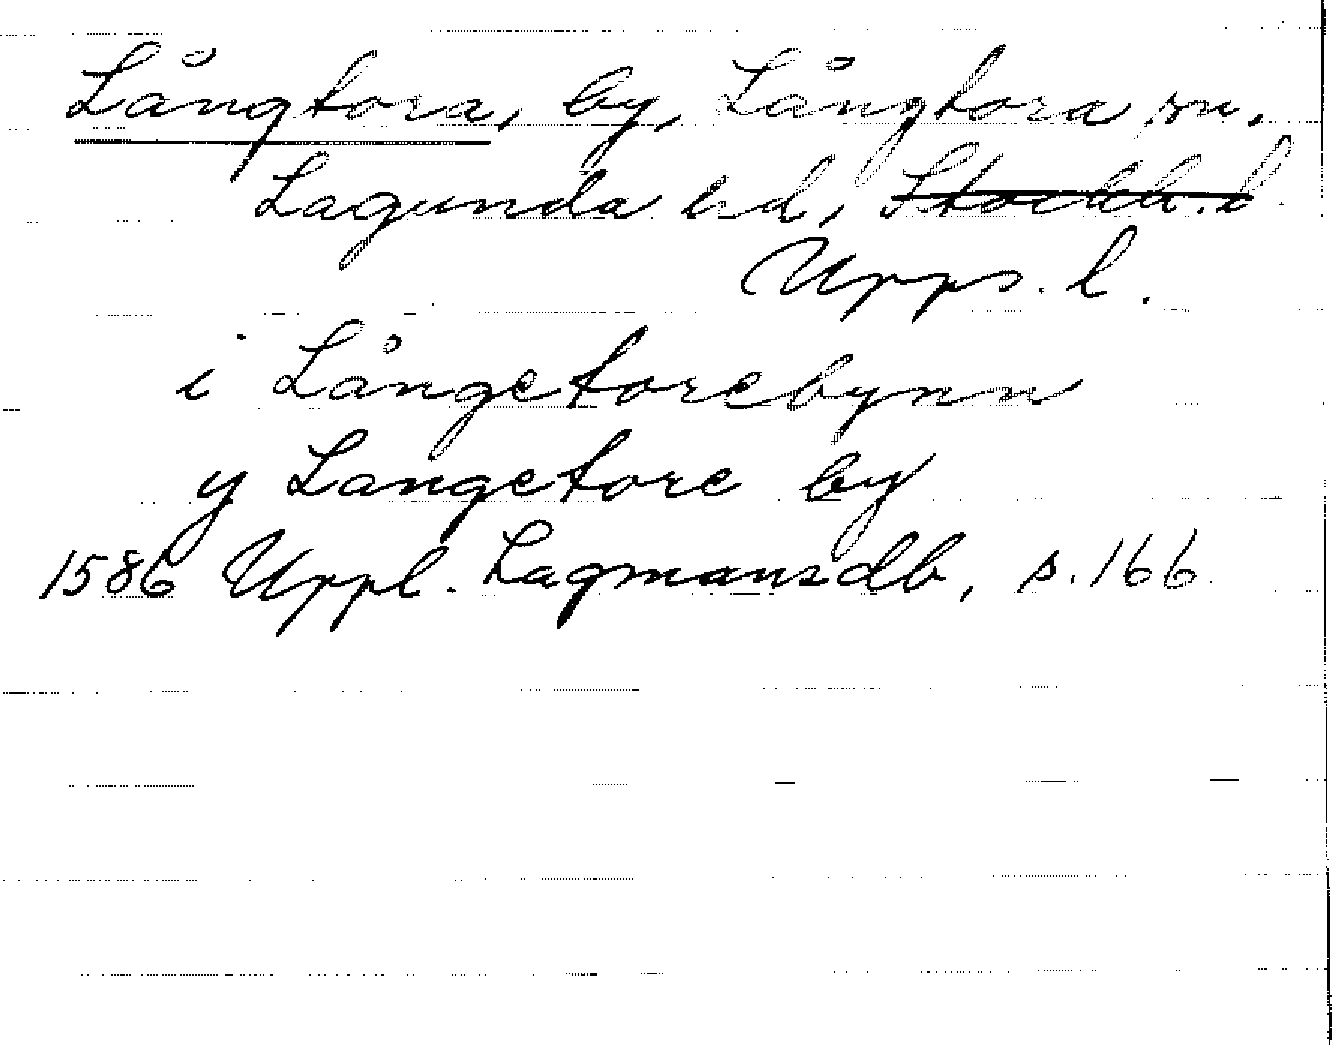 Långtora, by, Långtora sn.
Lagunda hd, Stockh. l
Upps. l.
i Långetorebynn
y Langetore by
1586 Uppl. Lagmansdb, s. 166